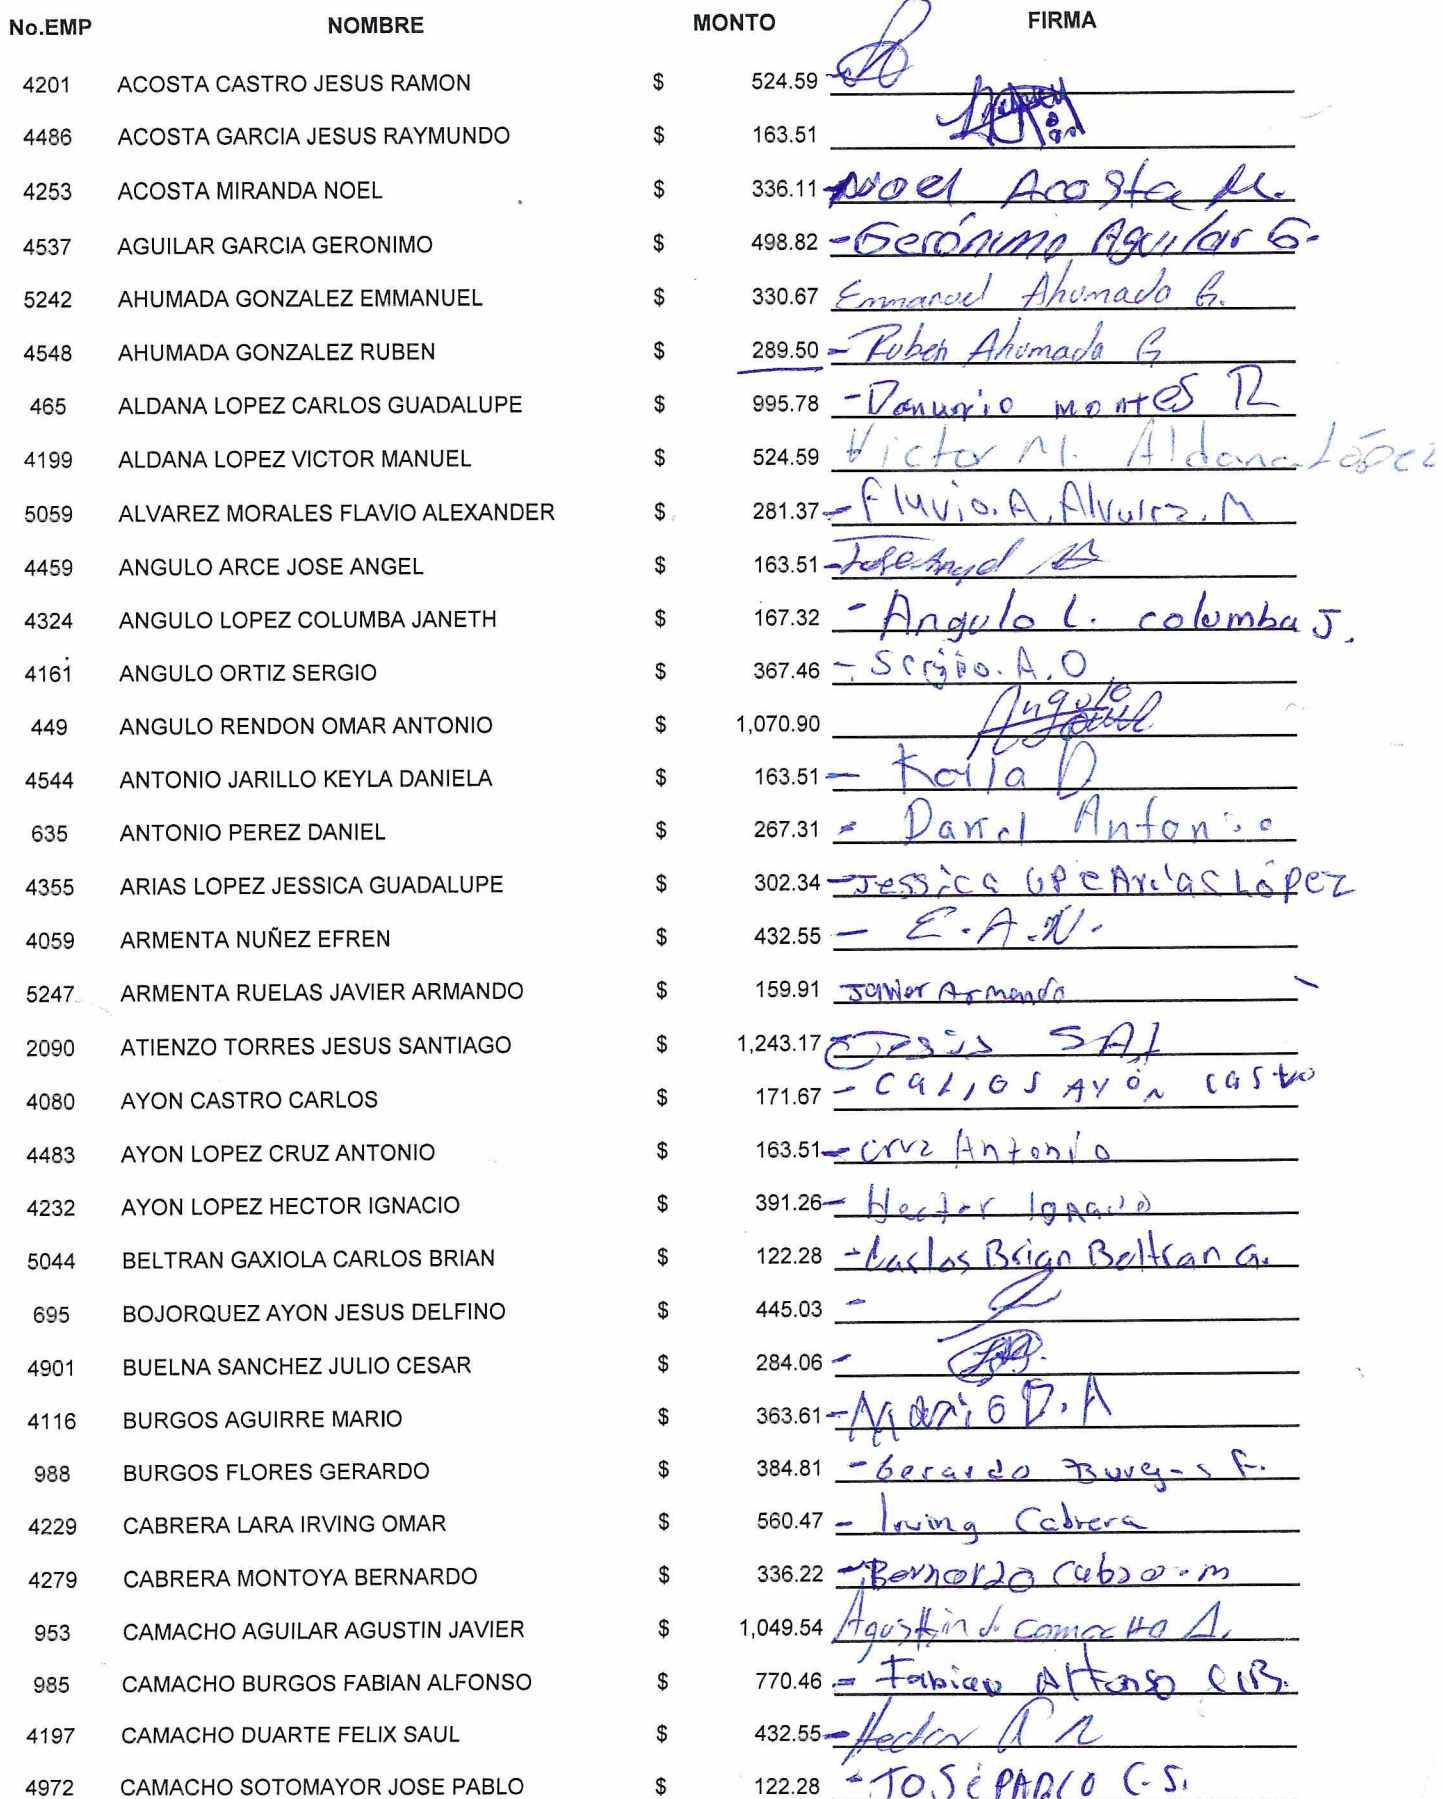 No.EMP NOMBRE MONTO FIRMA
4201 ACOSTA CASTRO JESUS RAMON $ 524.59
4486 ACOSTA GARCIA JESUS RAYMUNDO $ 163.51
4253 ACOSTA MIRANDA NOEL $ 336.11 - Noel Acosta M.
4537 AGUILAR GARCIA GERONIMO $ 498.82 - Gerónimo Aguilar G-
5242 AHUMADA GONZALEZ EMMANUEL $ 330.67 Emmanuel Ahumada G.
4548 AHUMADA GONZALEZ RUBEN $ 289.50 - Ruben Ahumada G
465 ALDANA LOPEZ CARLOS GUADALUPE $ 995.78 - Danurio montes R
4199 ALDANA LOPEZ VICTOR MANUEL $ 524.59 Victor M. Aldana López
5059 ALVAREZ MORALES FLAVIO ALEXANDER $ 281.37 - Fluvio. A. Alvarez. M
4459 ANGULO ARCE JOSE ANGEL $ 163.51 - Jose Angel
4324 ANGULO LOPEZ COLUMBA JANETH $ 167.32 - Angulo L. columba J.
4161 ANGULO ORTIZ SERGIO $ 367.46 - Sergio. A. O
449 ANGULO RENDON OMAR ANTONIO $ 1,070.90 Angulo
4544 ANTONIO JARILLO KEYLA DANIELA $ 163.51 - Keila D
635 ANTONIO PEREZ DANIEL $ 267.31 - Daniel Antonio
4355 ARIAS LOPEZ JESSICA GUADALUPE $ 302.34 - Jessica GPE Arias López
4059 ARMENTA NUÑEZ EFREN $ 432.55 - E.A.N.
5247 ARMENTA RUELAS JAVIER ARMANDO $ 159.91 Javier Armando
2090 ATIENZO TORRES JESUS SANTIAGO $ 1,243.17 Jesús SAT
4080 AYON CASTRO CARLOS $ 171.67 - Carlos Ayón Castro
4483 AYON LOPEZ CRUZ ANTONIO $ 163.51 - Cruz Antonio
4232 AYON LOPEZ HECTOR IGNACIO $ 391.26 - Hector Ignacio
5044 BELTRAN GAXIOLA CARLOS BRIAN $ 122.28 - Carlos Brian Beltran G.
695 BOJORQUEZ AYON JESUS DELFINO $ 445.03 -
4901 BUELNA SANCHEZ JULIO CESAR $ 284.06 -
4116 BURGOS AGUIRRE MARIO $ 363.61 - Mario B.A
988 BURGOS FLORES GERARDO $ 384.81 - Gerardo Burgos F.
4229 CABRERA LARA IRVING OMAR $ 560.47 - Irving Cabrera
4279 CABRERA MONTOYA BERNARDO $ 336.22 - Bernardo
4 953 CAMACHO AGUILAR AGUSTIN JAVIER $ 1,049.54 Agustin J. Camacho A.
985 CAMACHO BURGOS FABIAN ALFONSO $ 770.46 - Fabian Alfonso C.B.
4197 CAMACHO DUARTE FELIX SAUL $ 432.55 - Hector
4972 CAMACHO SOTOMAYOR JOSE PABLO $ 122.28 - José Pablo C.S.